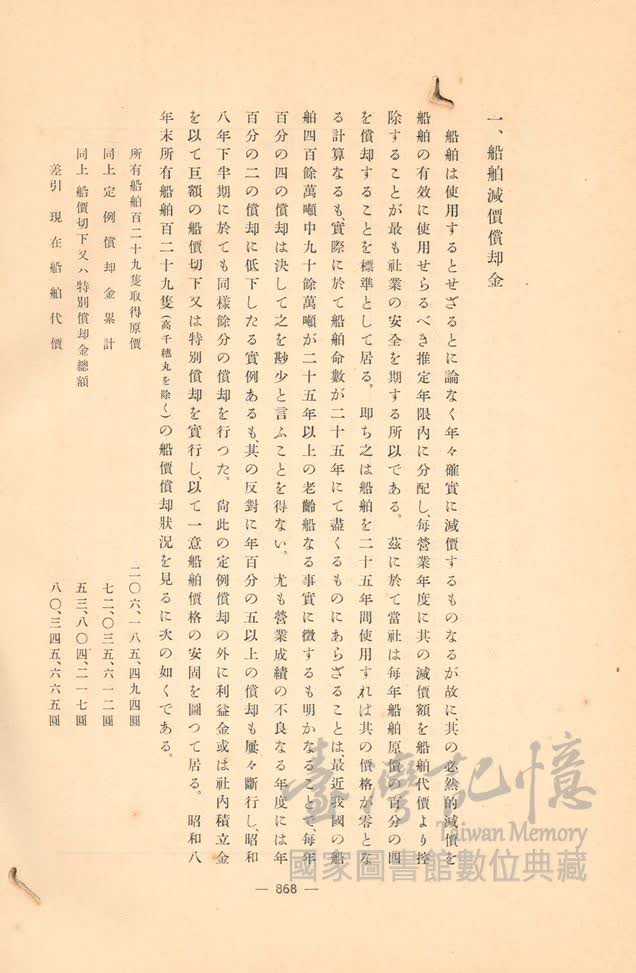 一、船舶減價償却金
船舶は使用するとせざるとに論なく年々確實に減價するものなるが故に、其の必然的減價を
船舶の有效に使用せらるべき推定年限內に分配し、每營業年度に其の減價額を船舶代價より控
除することが最も社業の安全を期する所以である。茲に於て當社は每年船舶原價の百分の四
を償却することを標準として居る。卽ち之は船舶を二十五年間使用すれば其の價格が零とな
る計算なるも、實際に於て船舶命數が二十五年にて盡くるものにあらざることは、最近我國の船
舶四百餘萬噸中九十餘萬噸が二十五年以上の老齡船なる事實に徵するも明かなることで、每年
百分の四の償却は決して之を尠少と言ふことを得ない。尤も營業成績の不良なる年度には年
百分の二の償却に低下したる實例あるも、其の反對に年百分の五以上の償却も屢々斷行し、昭和
八年下半期に於ても同樣餘分の償却を行つた。尙此の定例償却の外に利益金或は社內積立金
を以て巨額の船價切下又は特別償却を實行し、以て一意船舶價格の安固を圖つて居る。昭和八
年末所有船舶百二十九隻(高千穗丸を除く)の船價償却狀況を見るに次の如くである。
所有船舶百二十九隻取得原價 二〇六、一八五、四九四圓
同上定例償却金累計 七二、〇三五、六一二圓
同上船價切下又ハ特別償却金總額 五三、八〇四、二一七圓
差引現在船舶代價 八〇、三四五、六六五圓
— 868 —
臺灣記憶
Taiwan Memory
國家圖書館數位典藏